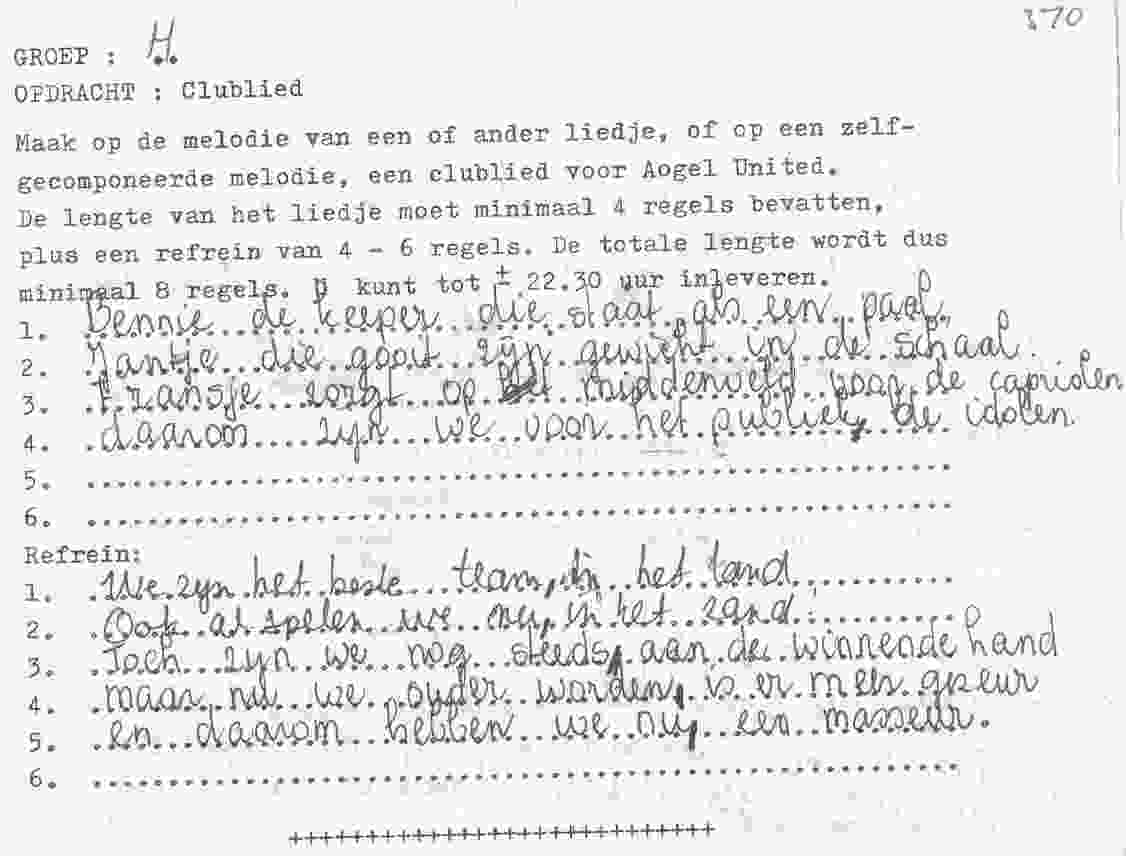 370
GROEP : H.
OPDRACHT : Clublied
Maak op de melodie van een of ander liedje, of op een zelf-
gecomponeerde melodie, een clublied voor Aogel United.
De lengte van het liedje moet minimaal 4 regels bevatten,
plus een refrein van 4 - 6 regels. De totale lengte wordt dus
minimaal 8 regels. U kunt tot ± 22.30 uur inleveren.
1. Bennie de keeper die staat als een paal,
2. Jantje die gooit zijn gewicht in de schaal.
3. Fransje zorgt op het middenveld voor de capriolen
4. daarom zijn we voor het publiek, de idolen
5.
6.
Refrein:
1. We zijn het beste team, in het land
2. Ook al spelen we nu, in het zand.
3. Toch zijn we nog steeds, aan de winnende hand
4. maar nu we ouder worden, is er meer
5. en daarom hebben we nu, een masseur.
6.
+++++++++++++++++++++++++++